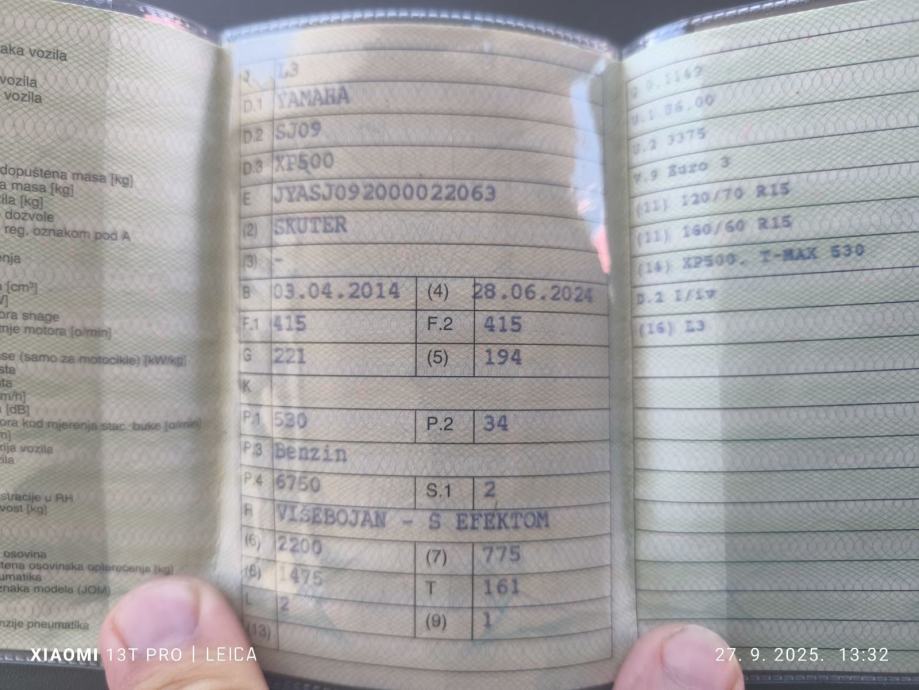 aka vozila
vozila
vozila
dopuštena masa [kg]
a masa [kg]
zila [kg]
dozvole
reg. oznakom pod A
enja
[cm³]
ora snage
tnje motora [o/min]
se (samo za motocikle) [kW/kg]
sta
ata
m/h]
[dB]
ora kod mjerenja stac. buke [o/min]
m]
ija vozila
zila
stracije u RH
vost [kg]
osovina
tena osovinska opterećenja [kg]
umatika
naka modela (JOM)
nzije pneumatika
J L3
D.1 YAMAHA
D.2 SJ09
D.3 XP500
E JYASJ092000022063
(2) SKUTER
(3) -
B 03.04.2014 (4) 28.06.2024
F.1 415 F.2 415
G 221 (5) 194
K
P.1 530 P.2 34
P.3 Benzin
P.4 6750 S.1 2
R VIŠEBOJAN - S EFEKTOM
(6) 2200 (7) 775
(8) 1475 T 161
L 2 (9) 1
(13)
Q 0.1147
U.1 86.00
U.2 3375
V.9 Euro 3
(11) 120/70 R15
(11) 160/60 R15
(14) XP500. T-MAX 530
D.2 I/iv
(16) L3
XIAOMI 13T PRO | LEICA
27. 9. 2025. 13:32